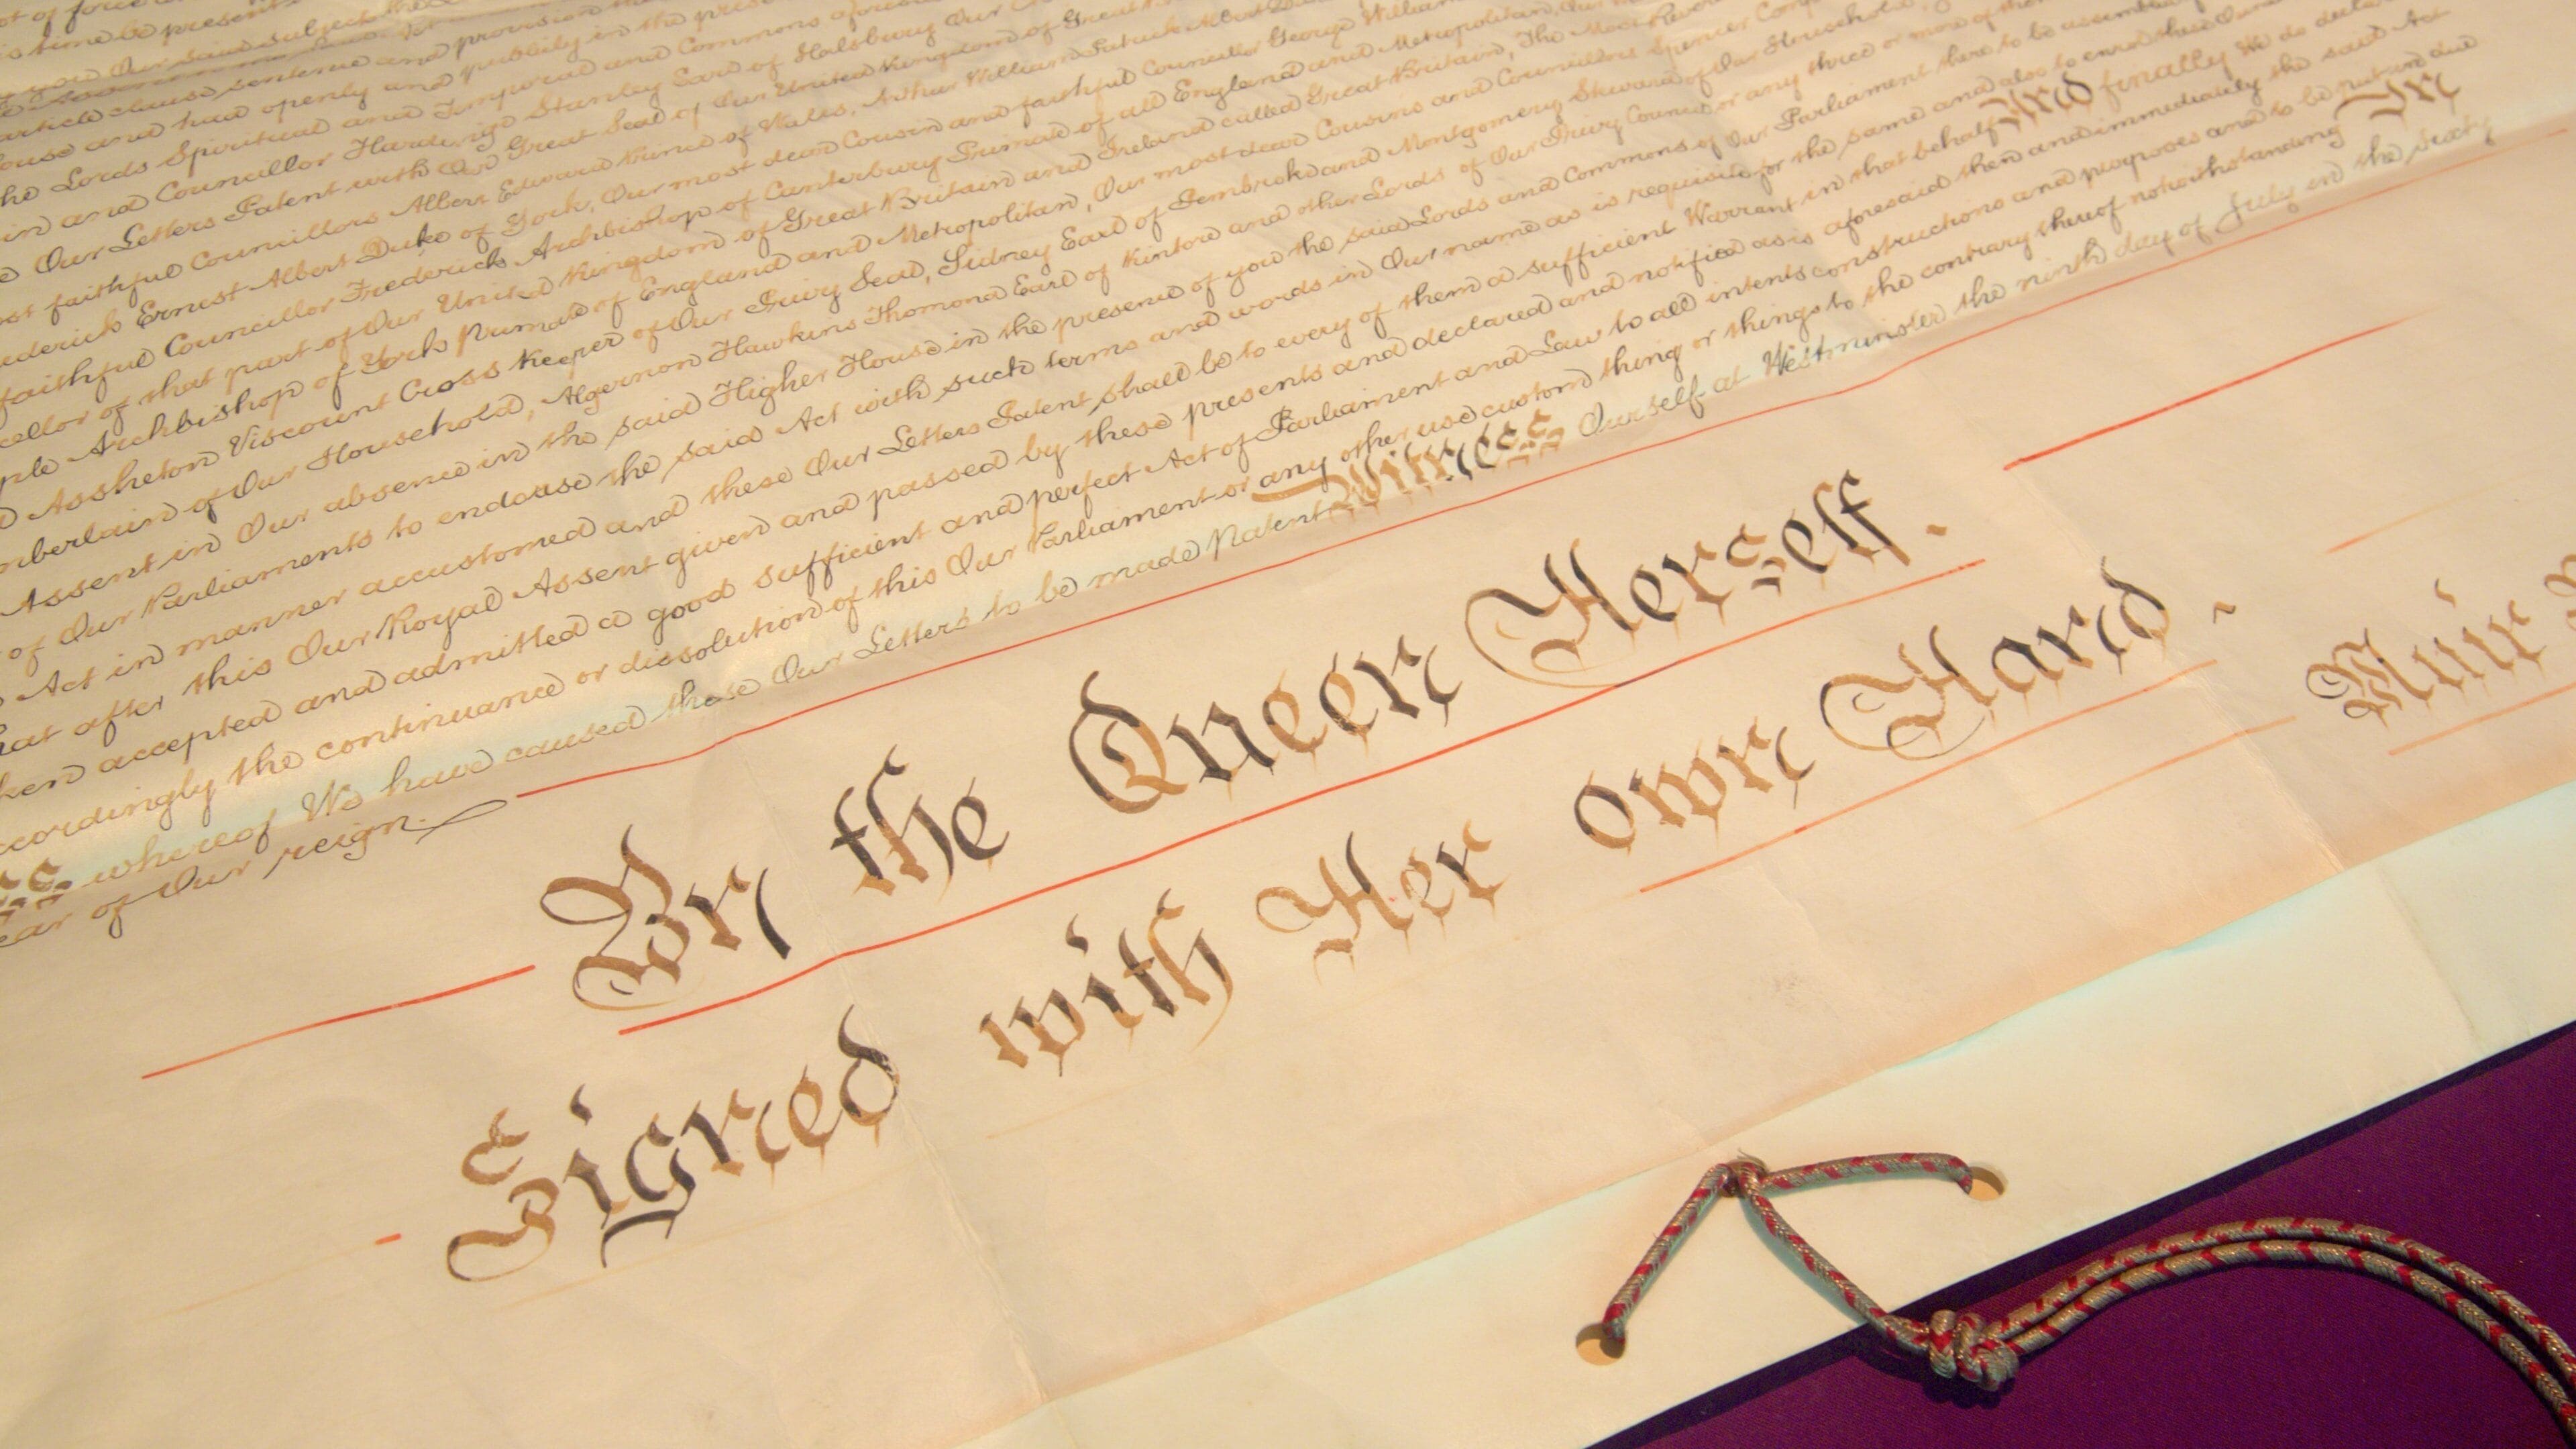 time be present
Our said subjects the
article clause sentence and provision
House and had openly and publicly in the
the Lords Spiritual and Temporal and Commons aforesaid
and Councillor Hardinge Stanley Earl of Halsbury Our
Our Letters Patent with Our Great Seal of Our United Kingdom of Great
faithful Councillors Albert Edward Prince of Wales, Arthur William Patrick Albert
Frederick Ernest Albert Duke of York, Our most dear Cousin and faithful Councillor George William
faithful Councillor Frederick Archbishop of Canterbury Primate of all England and Metropolitan, Our
of that part of Our United Kingdom of Great Britain and Ireland called Great Britain, The Most Reverend
Archbishop of York Primate of England and Metropolitan, Our most dear Cousins and Councillors Spencer
Assheton Viscount Cross Keeper of Our Privy Seal, Sidney Earl of Pembroke and Montgomery Steward of Our Household,
of Our Household, Algernon Hawkins Thomond Earl of Kintore and other Lords of Our Privy Council or any three or more of them
Assent in Our absence in the said Higher House in the presence of you the said Lords and Commons of Our Parliament there to be assembled
of Our Parliaments to endorse the said Act with such terms and words in Our name as is requisite for the same and also to enrol these Our
Act in manner accustomed and these Our Letters Patent shall be to every of them a sufficient Warrant in that behalf And finally We do declare
that after this Our Royal Assent given and passed by these presents and declared and notified as is aforesaid then and immediately the said Act
accepted and admitted a good sufficient and perfect Act of Parliament and Law to all intents constructions and purposes and to be put in due
accordingly the continuance or dissolution of this Our Parliament or any other use custom thing or things to the contrary thereof notwithstanding In
whereof We have caused these Our Letters to be made Patent Witness Ourself at Westminster the ninth day of July in the sixty
of Our reign.
By the Queen Herself.
Signed with Her own Hand.
Muir